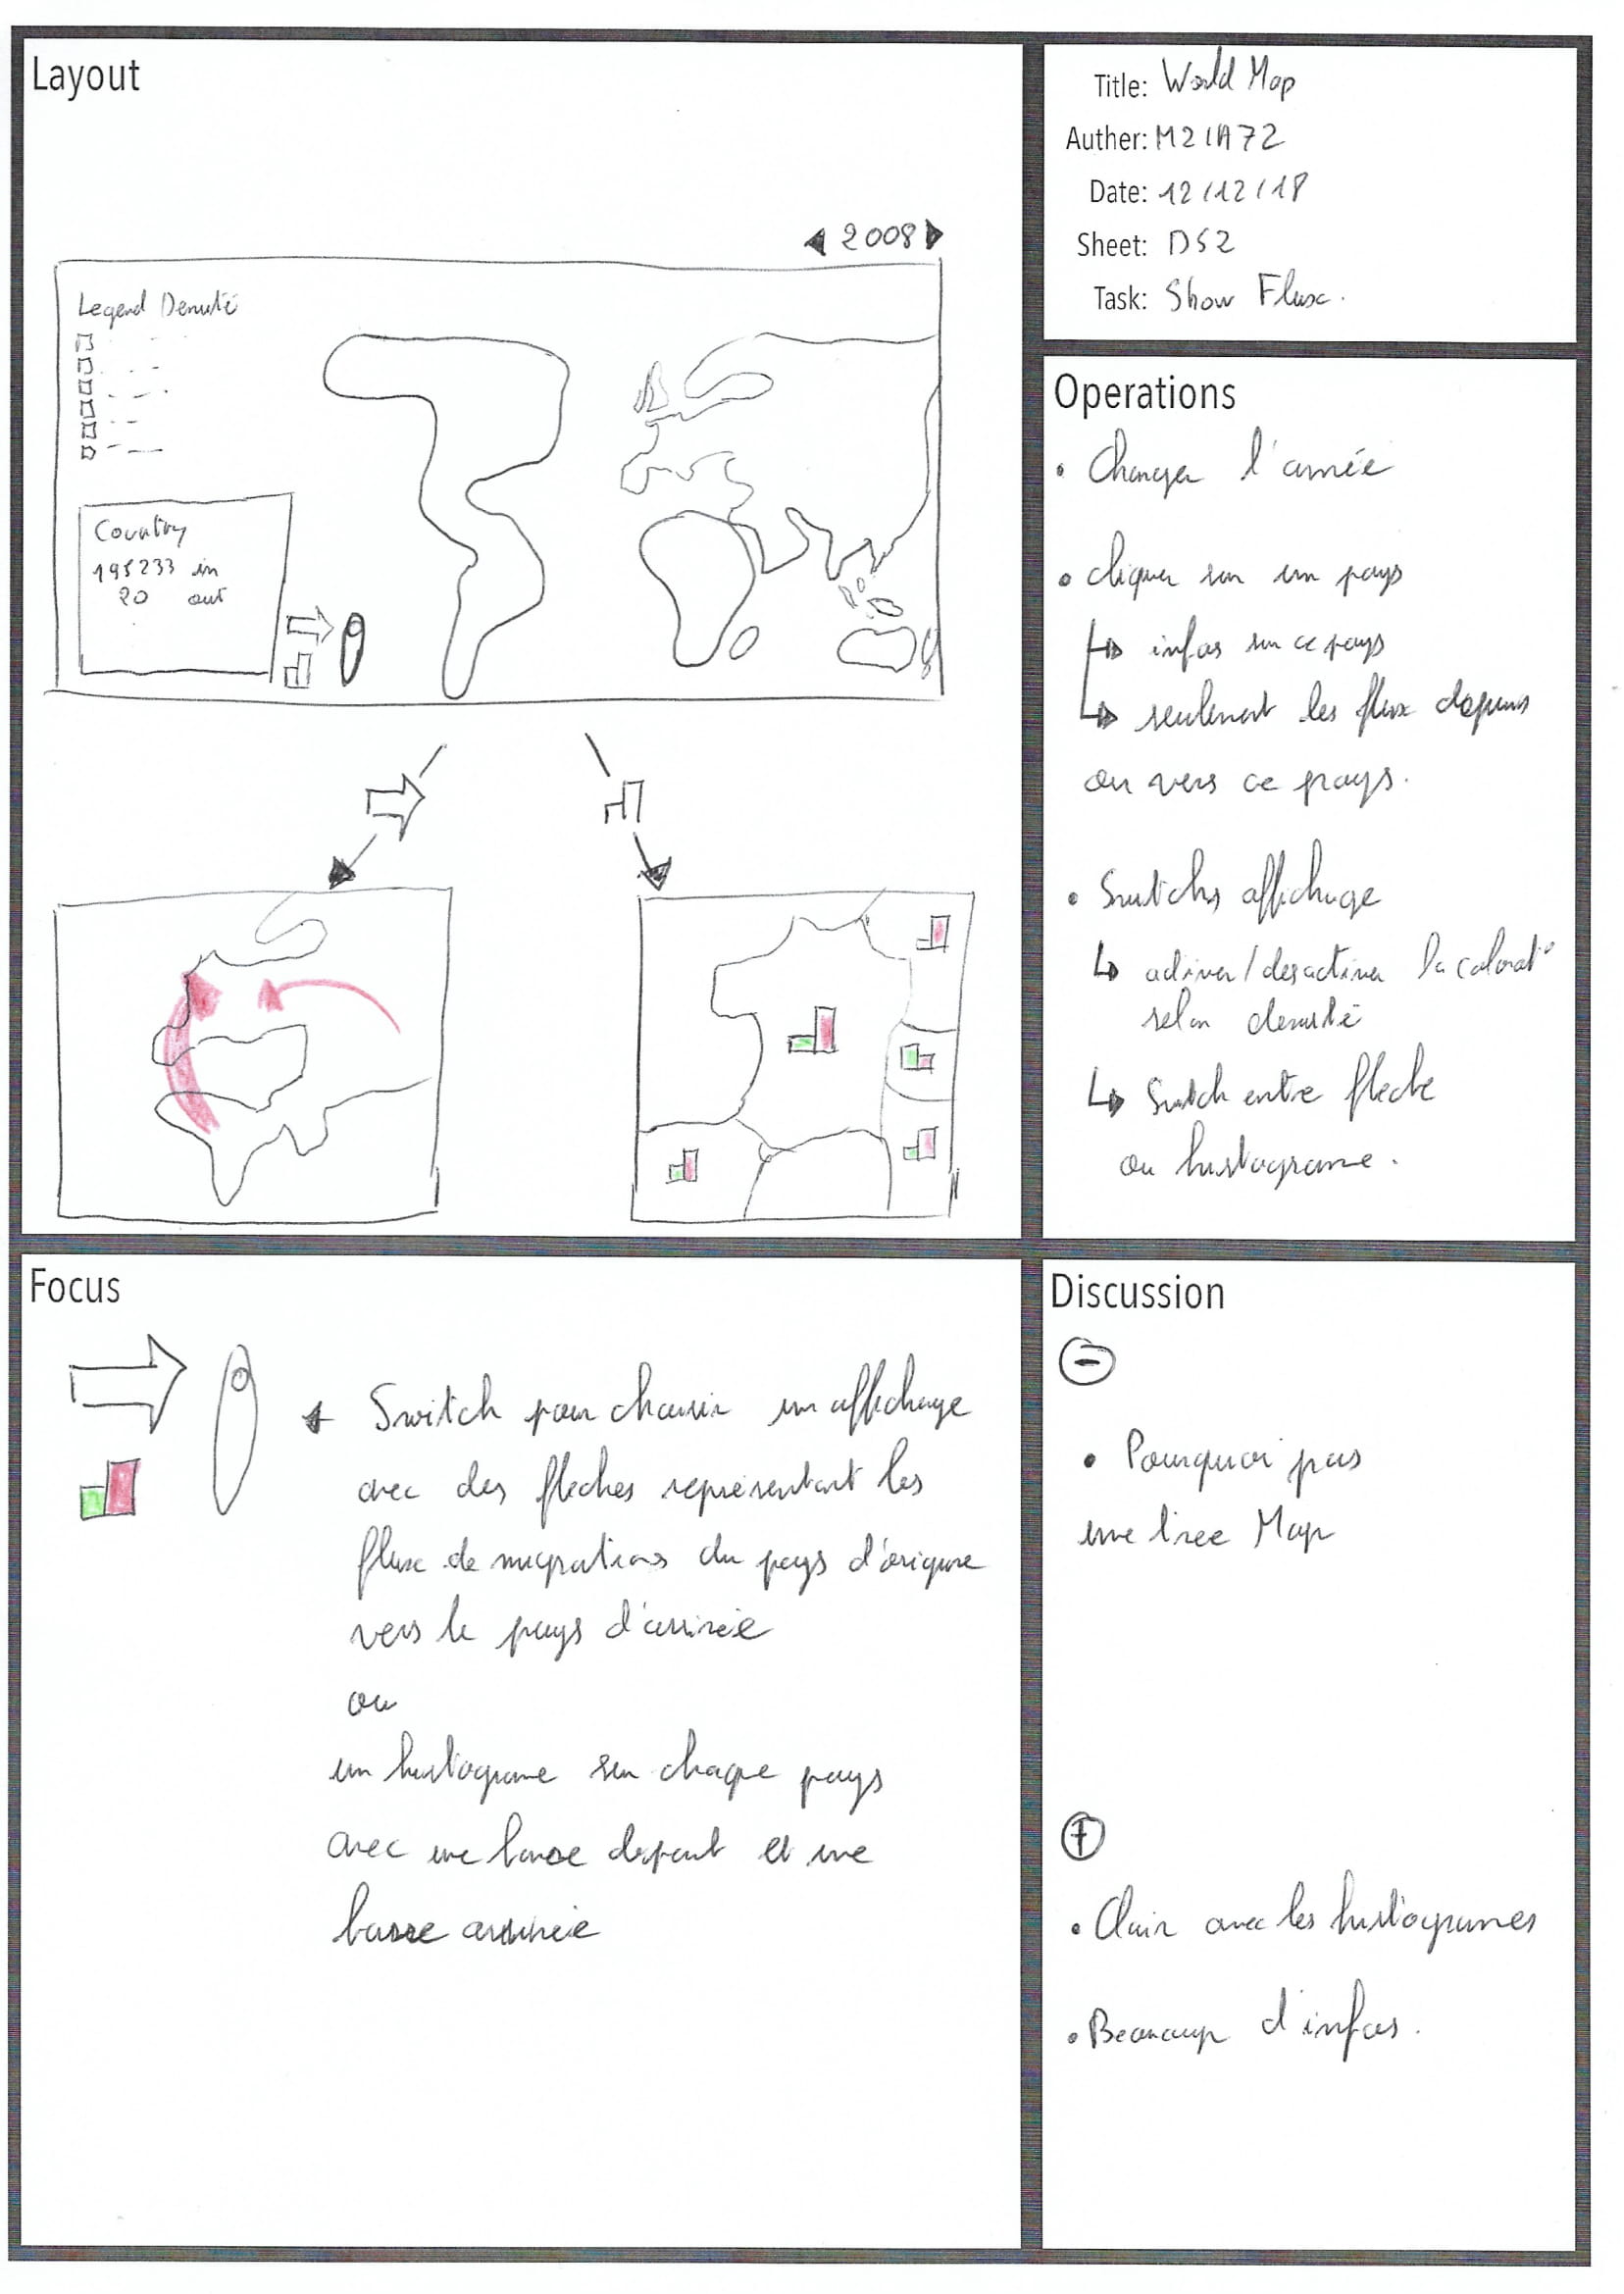 Layout
◀ 2008 ▶
Legend Densité
Country
195233 in
20 out
Title: World Map
Auther: M21A72
Date: 12/12/18
Sheet: DS2
Task: Show Flux.
Operations
• Changer l'année
• cliquer sur un pays
↳ infos sur ce pays
↳ seulement les flux depuis
ou vers ce pays.
• Switchs affichage
↳ activer/desactiver la colorat°
selon densité
↳ Switch entre fleche
ou histograme.
Focus
Switch pour choisir un affichage
avec des fleches représentant les
flux de migrations du pays d'origine
vers le pays d'arrivée
ou
un histograme sur chaque pays
avec une barre depart et une
barre arrivée
Discussion
-
• Pourquoi pas
une tree Map
+
• Clair avec les histogrames
• Beaucoup d'infos.